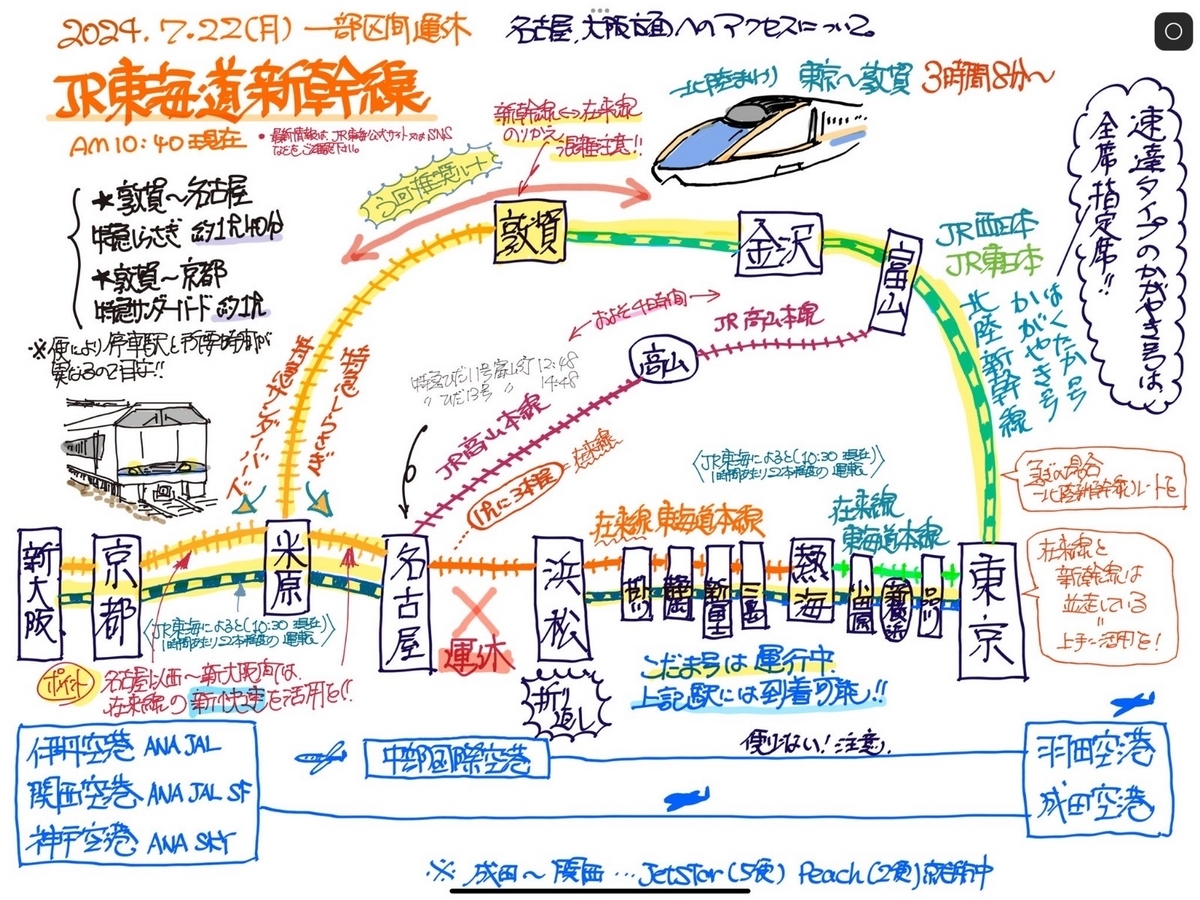 2024.7.22(月) 一部区間運休
名古屋、大阪方面へのアクセスについて。
JR東海道新幹線
AM10:40現在
*最新情報は、JR東海公式サイト又はSNS
などをご確認下さい。
北陸まわり 東京〜敦賀 3時間8分〜
新幹線⇔在来線
のりかえ
混雑注意!!
今回推奨ルート
★敦賀〜名古屋
特急しらさぎ 約1h40分
★敦賀〜京都
特急サンダーバード 約1h
※便により停車駅と所要時間が
異なるので目安!!
速達タイプのかがやき号は
全席指定席!!
敦賀
金沢
富山
JR西日本
JR東日本
はくたか号
かがやき号
北陸新幹線
およそ4時間
JR高山本線
高山
特急ひだ11号富山行 12:48
〃 ひだ13号 〃 14:48
JR高山本線
特急しらさぎ
特急サンダーバード
1hに3本程
在来線
〈JR東海によると(10:30現在)
1時間あたり2本程度の運転〉
在来線 東海道本線
在来線
東海道本線
急ぎの場合
北陸新幹線ルートを
在来線と
新幹線は
並走している
=
上手に活用を!
新大阪
京都
米原
名古屋
浜松
掛川
静岡
新富士
三島
熱海
小田原
新横浜
品川
東京
運休
折り返し
〈JR東海によると(10:30現在)
1時間あたり2本程度の運転〉
こだま号は運行中
上記駅には到着可能!!
ポイント
名古屋以西〜新大阪間は、
在来線の新快速を活用を!!
伊丹空港 ANA JAL
関西空港 ANA JAL SF
神戸空港 ANA SKY
中部国際空港
便少ない!注意。
羽田空港
成田空港
※ 成田〜関西…JetStar(5便) Peach(2便)就航中